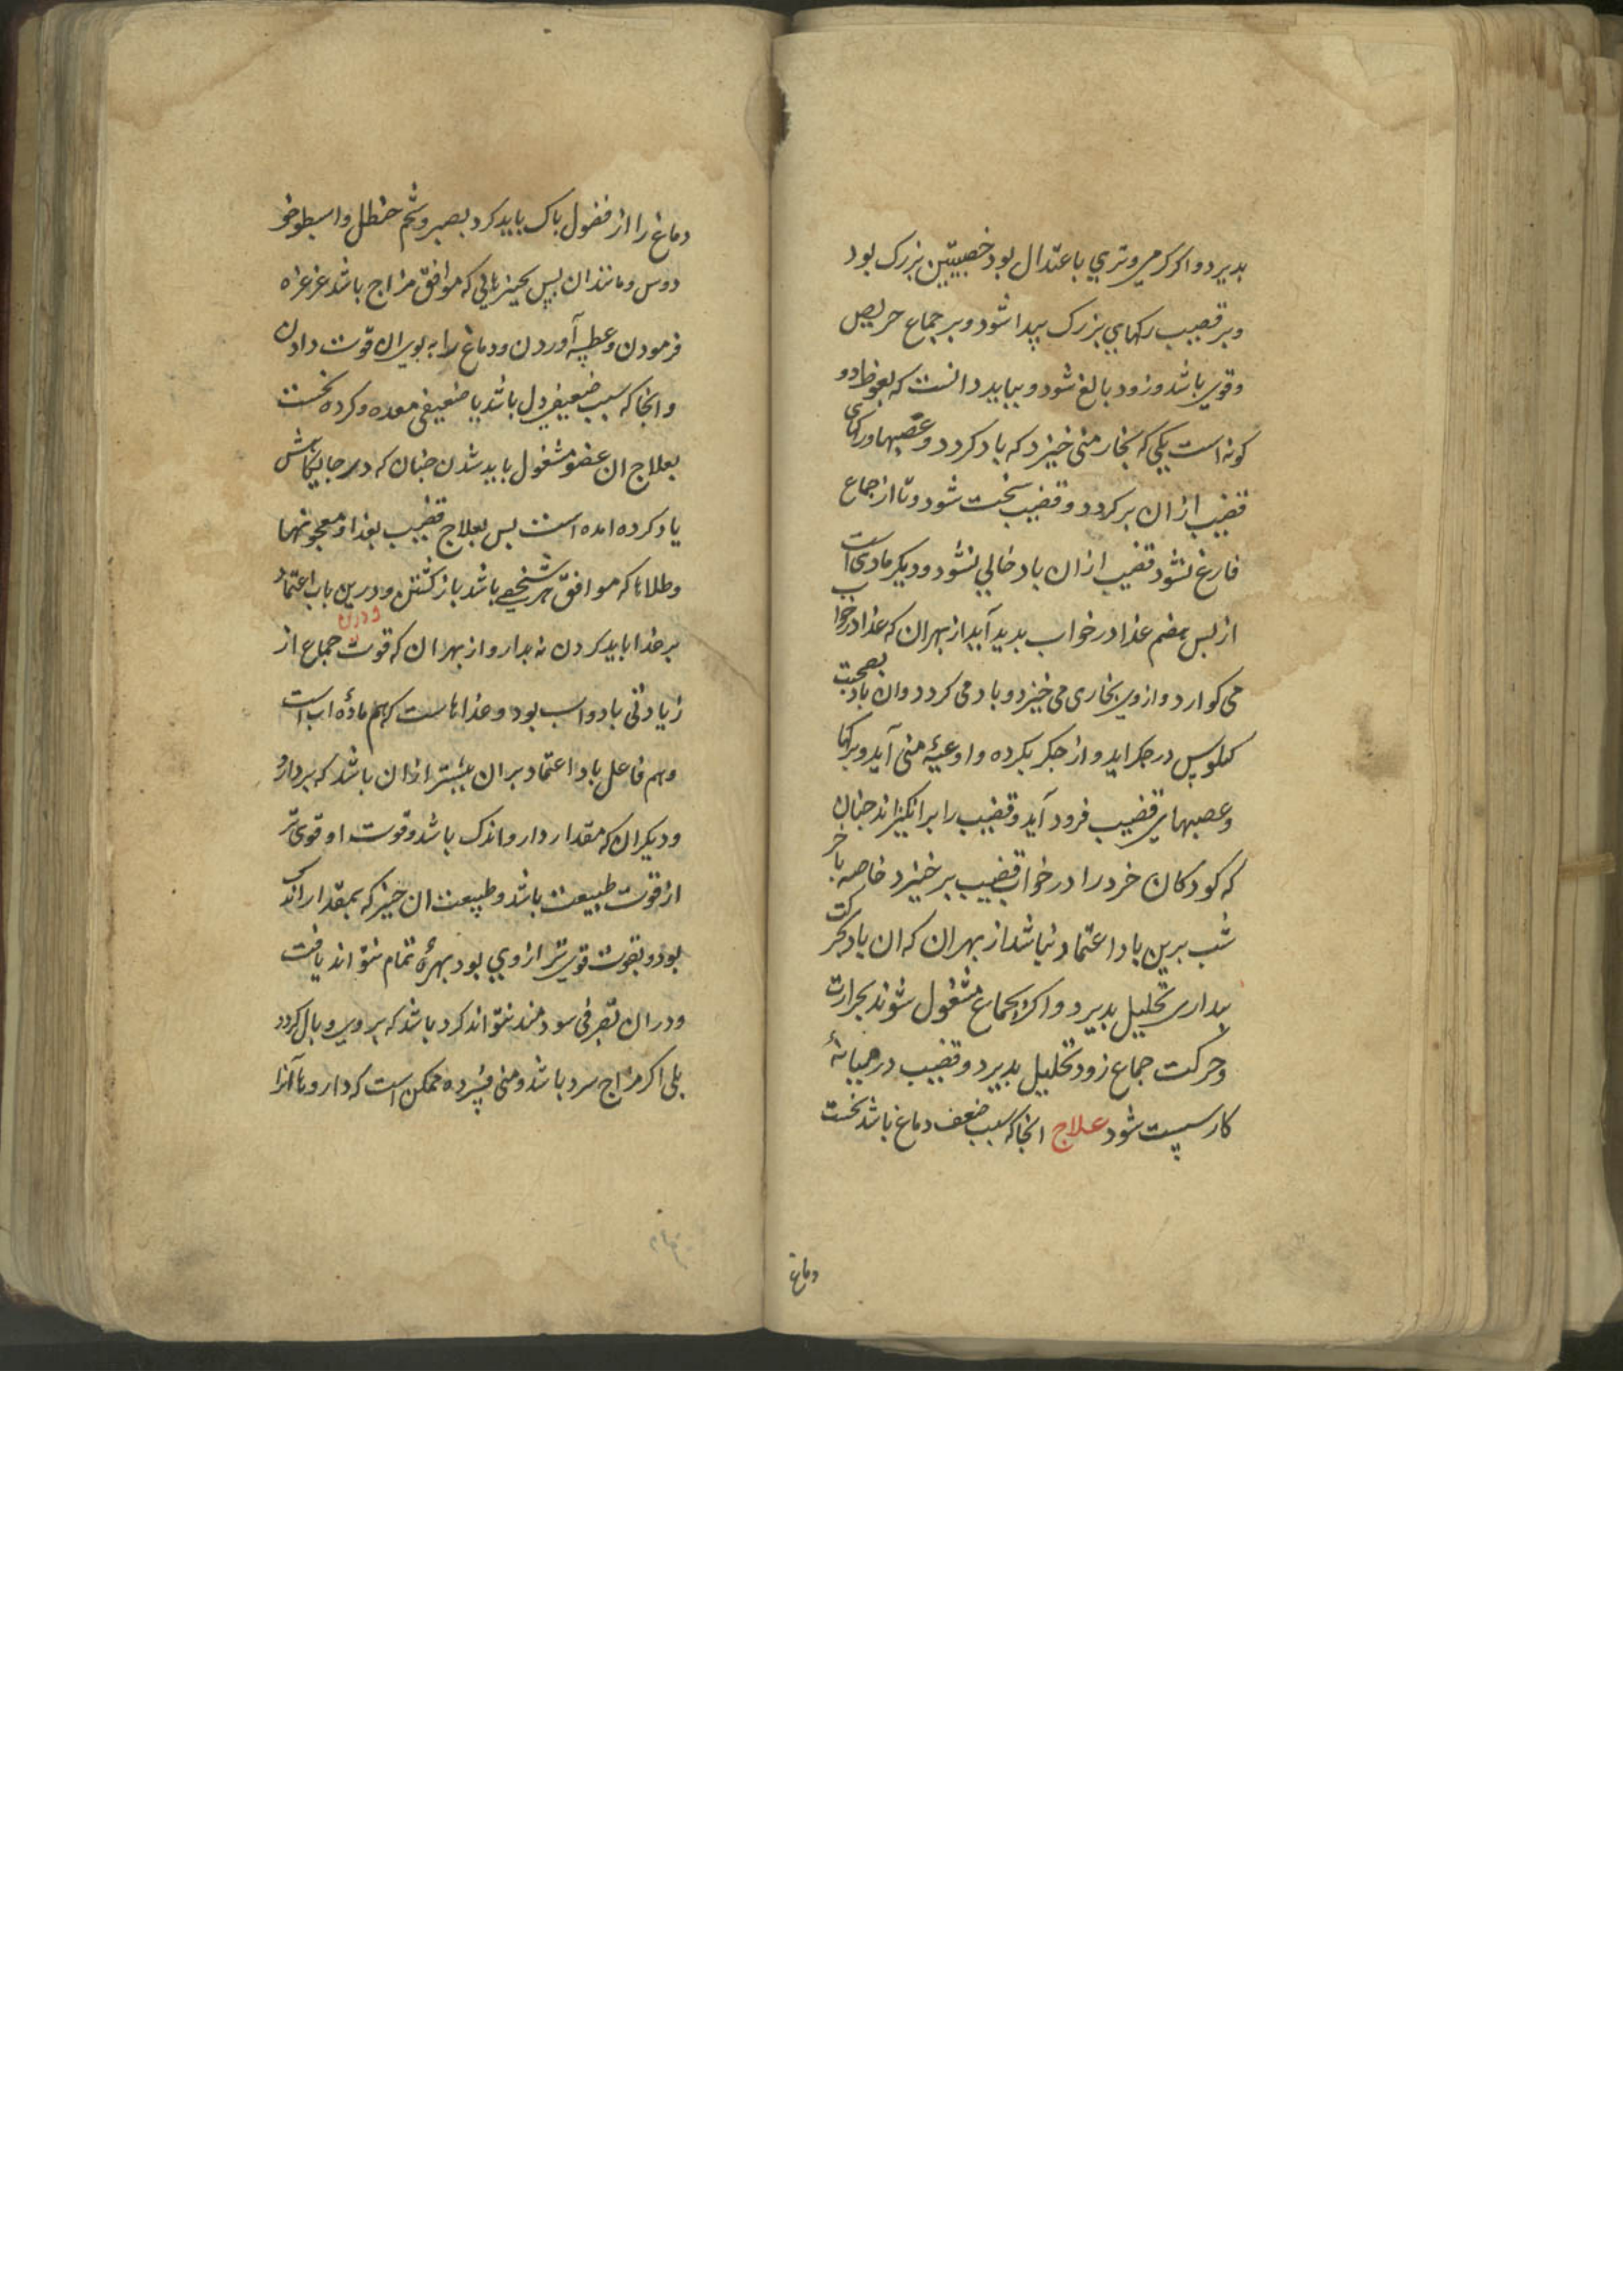 بدیرد واکر کرمی وتری باعتدال بود خصیتین بزرک بود
وبر قضیب رکهای بزرک پیدا شود وبر جماع حریص
وقوی باشد وزود بالغ شود وبباید دانست که نعوظ دو
کونه است یکی که بخار منی خیزد که باد کردد و عصبها ورکهای
قضیب ازان بر کردد وقضیب سخت شود وتا از جماع
فارغ نشود قضیب ازان باد خالی نشود ودیکر مادی است
از بس هضم غذا در خواب بدید آید از بهر ان که غذا در خواب
می کوارد واز وی بخاری می خیزد وباد می کردد وان باد بصحبت
کیلوس در جکر اید واز جکر بکرده واوعیهٔ منی آید وبرکها
وعصبهای قضیب فرود آید وقضیب را برانکیزاند جنان
که کودکان خرد را در خواب قضیب بر خیزد خاصه باخر
شب برین باد اعتماد نباشد از بهر ان که ان باد بحرکت
بیداری تحلیل بدیرد واکر بجماع مشغول شوند بحرارت
وحرکت جماع زود تحلیل بدیرد وقضیب در میانهٔ
کار سست شود علاج انجا که سبب ضعف دماغ باشد نخست
دماغ
دماغ را از فضول باک باید کرد بصبر وشحم حنظل واسطوخو
دوس ومانند ان پس بجیزهایی که موافق مزاج باشد غرغره
فرمودن وعطسه آوردن ودماغ را به بویها قوت دادن
وانجا که سبب ضعیفی دل باشد یا ضعیفی معده وکرده نخست
بعلاج ان عضو مشغول باید شدن جنان که در جایکاهش
یاد کرده امده است بس بعلاج قضیب بغذا ومعجونها
وطلاها که موافق هر شخصی باشد باز کشتن ودرین باب اعتماد
بر غذا باید کردن نه بدارو از بهر ان که قوت جماع از
زیادتی باد واب بود وغذاهاست که هم مادهٔ اب است
وهم فاعل باد اعتماد بران بیشتر ازان باشد که بر دارو
ودیکر ان که مقدار دارو اندک باشد وقوت او قوی تر
از قوت طبیعت باشد وطبیعت ان جیز که بمقدار اندک
بود وبقوت قوی تر از وی بود بهرهٔ تمام نتواند یافت
ودران تصرفی سودمند نتواند کرد باشد که بر وی وبال کردد
بلی اکر مزاج سرد باشد ومنی فسرده ممکن است که داروها آنرا